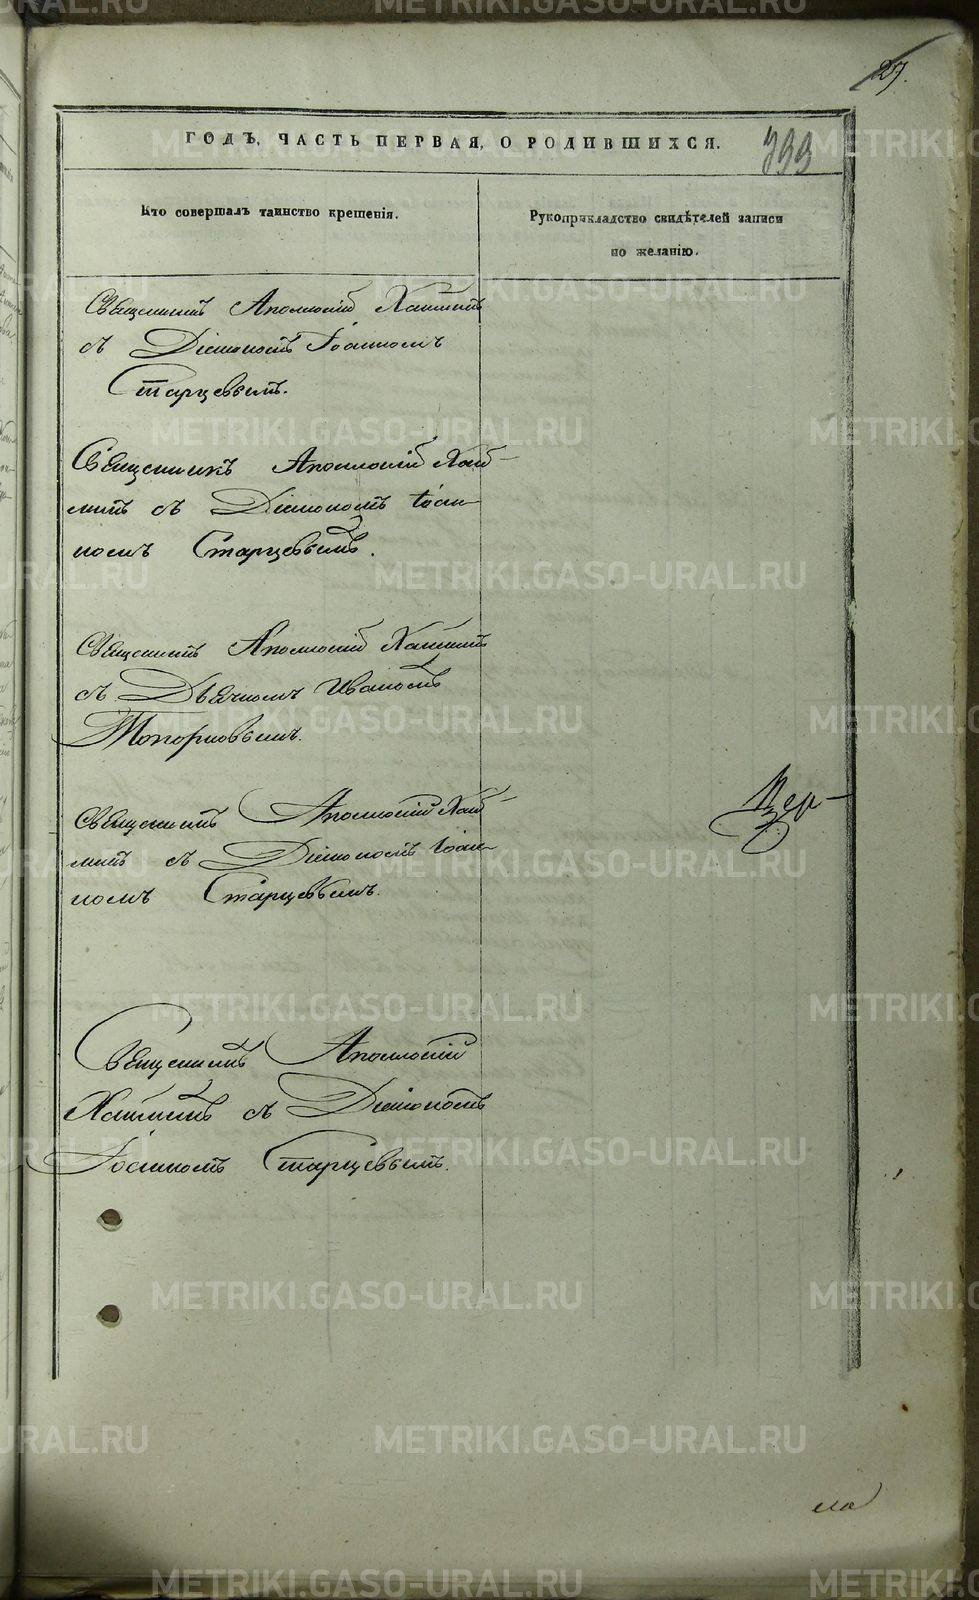 27.
ГОДЪ, ЧАСТЬ ПЕРВАЯ, О РОДИВШИХСЯ.
399
Кто совершалъ таинство крещенія.
Рукоприкладство свидѣтелей записи
по желанію.
Священникъ Аполлоній
съ Діакономъ Іоанномъ
Старцевымъ.
Священникъ Аполлоній
съ Діакономъ Іоан-
номъ Старцевымъ.
Священникъ Аполлоній
съ Дьячкомъ Иваномъ
Топорковымъ.
Священникъ Аполлоній
съ Діакономъ Іоан-
номъ Старцевымъ.
Цер-
Священникъ Аполлоній
съ Діакономъ
Іоанномъ Старцевымъ.
METRIKI.GASO-URAL.RU